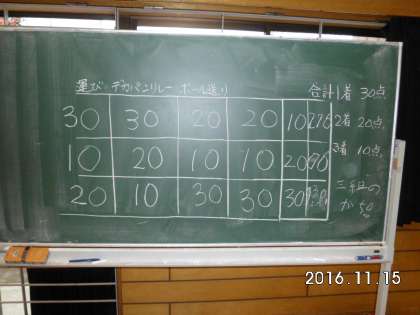 運び デカパンリレー ボール送り 合計 1着 30点
30 30 20 20 10 2着 20点
10 20 10 10 20 3着 10点
20 10 30 30 30
2016.11.15